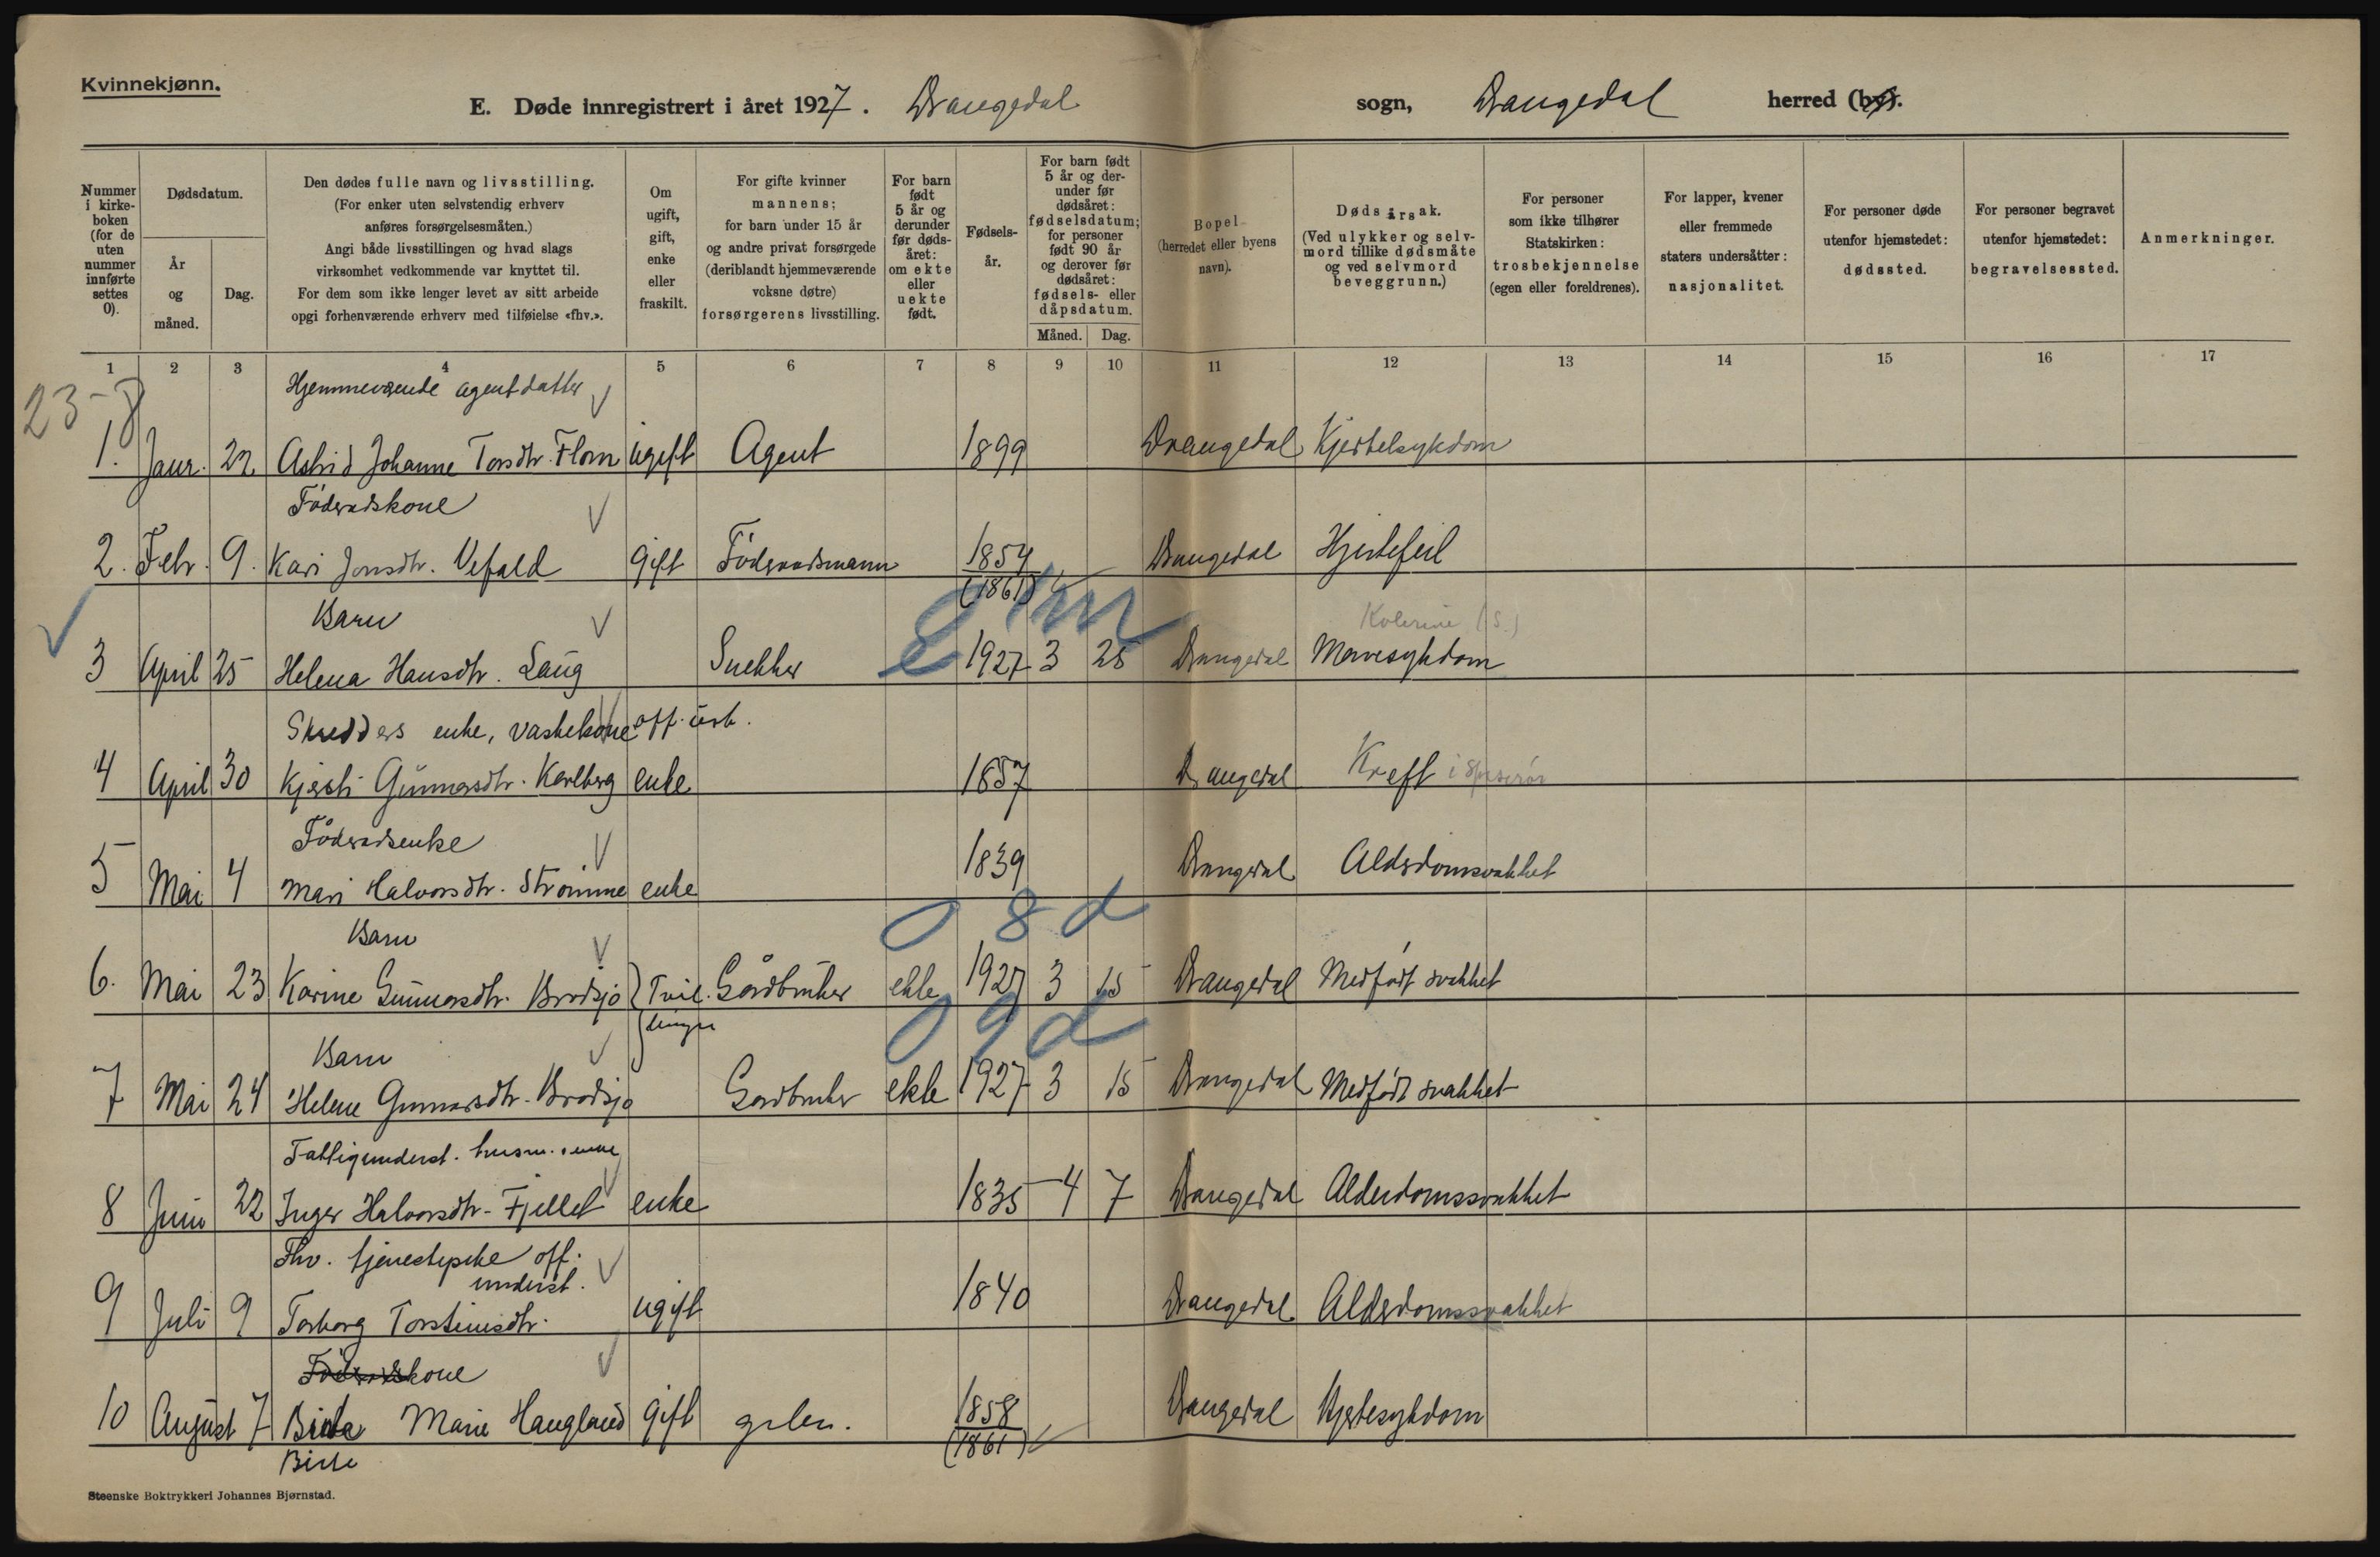 Kvinnekjønn.
E. Døde innregistrert i året 1927. Drangedal sogn, Drangedal herred (by).
Nummer i kirkeboken (for de uten nummer innførte settes 0).
Dødsdatum.
År og måned.
Dag.
Den dødes fulle navn og livsstilling.
(For enker uten selvstendig erhverv anføres forsørgelsesmåten.)
Angi både livsstillingen og hvad slags virksomhet vedkommende var knyttet til.
For dem som ikke lenger levet av sitt arbeide opgi forhenværende erhverv med tilføielse «fhv.».
Om ugift, gift, enke eller fraskilt.
For gifte kvinner mannens; for barn under 15 år og andre privat forsørgede (deriblandt hjemmeværende voksne døtre) forsørgerens livsstilling.
For barn født 5 år og derunder før dødsåret: om ekte eller uekte født.
Fødselsår.
For barn født 5 år og derunder før dødsåret: fødselsdatum; for personer født 90 år og derover før dødsåret: fødsels- eller dåpsdatum.
Måned. Dag.
Bopel (herredet eller byens navn).
Dødsårsak.
(Ved ulykker og selvmord tillike dødsmåte og ved selvmord beveggrunn.)
For personer som ikke tilhører Statskirken: trosbekjennelse (egen eller foreldrenes).
For lapper, kvener eller fremmede staters undersåtter: nasjonalitet.
For personer døde utenfor hjemstedet: dødssted.
For personer begravet utenfor hjemstedet: begravelsessted.
Anmerkninger.
1 2 3 4 5 6 7 8 9 10 11 12 13 14 15 16 17
23-8
Hjemmeværende agentdatter
1. Janr. 22. Astrid Johanne Torsdtr. Flom ugift Agent 1899 Drangedal Kjertelsykdom
Föderådskone
2. Febr. 9. Kari Jonsdtr. Vefald gift Föderaadsmann 1854 Drangedal Hjertefeil
(1861)
Barn E 1m Kolerine (S.)
3 April 25 Helena Hansdtr. Laug Snekker 1927 3 25 Drangedal Mavesykdom
Skredders enke, vaskekone off. und.
4 April 30 Kjersti Gunnarsdtr. Karlberg enke 1857 Drangedal Kreft i spiserör
Föderådsenke
5 Mai 4 Mari Halvorsdtr. Strömme enke 1839 Drangedal Alderdomsvakhet
Barn 0 8 d
6. Mai 23 Karine Gunnarsdtr. Brødsjø Tvil- Gårdbruker ekte 1927 3 15 Drangedal Medfødt svakhet
linger
Barn 0 9 d
7 Mai 24 Helene Gunnarsdtr. Brødsjø Gardbruker ekte 1927 3 15 Drangedal Medfödt svakhet
Fattigunderst. husm. enke
8 Juni 22 Inger Halvorsdtr. Fjellet enke 1835 4 7 Drangedal Alderdomssvakhet
Fhv. tjenestepike off. underst.
9 Juli 9 Torborg Torsteinsdtr. ugift 1840 Drangedal Alderdomssvakhet
Föderådskone
10 August 7 Marie Haugland gift 1858 Drangedal Hjertesykdom
(1861)
Steenske Boktrykkeri Johannes Bjørnstad.